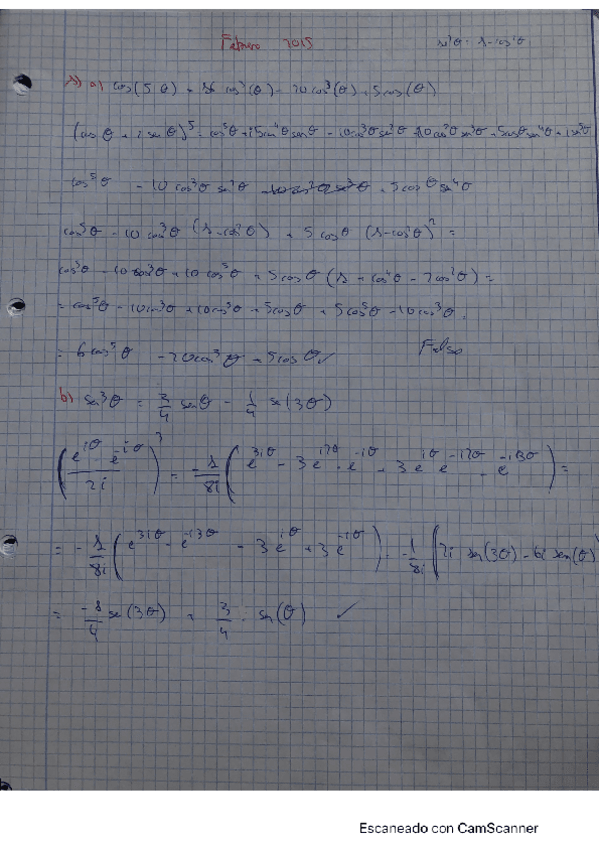 Febrero 2015
sen²θ = 1-cos²θ
1) a) cos(5θ) = 16 cos⁵(θ) - 20cos³(θ) + 5cos(θ)
(cos θ + i sen θ)⁵ = cos⁵θ + i5cos⁴θ senθ - 10cos³θ sen²θ
cos⁵θ - 10 cos³θ sen²θ + 5cosθ sen⁴θ
cos⁵θ - 10 cos³θ (1-cos²θ) + 5 cosθ (1-cos²θ)² =
cos⁵θ - 10 cos³θ + 10 cos⁵θ + 5cosθ (1 + cos⁴θ - 2cos²θ) =
= cos⁵θ - 10cos³θ + 10cos⁵θ + 5cosθ + 5cos⁵θ - 10cos³θ
= 6cos⁵θ - 20cos³θ + 5cosθ ✓ Falso
b) sen³θ = 3/4 senθ - 1/4 sen(3θ)
((e^iθ - e^-iθ)/2i)³ = -1/8i (e^3iθ - 3e^i2θ · e^-iθ + 3e^iθ e^-i2θ - e^-i3θ) =
= -1/8i (e^3iθ - e^-i3θ - 3e^iθ + 3e^-iθ) = -1/8i (2i sen(3θ) - 6i sen(θ))
= -1/4 sen(3θ) + 3/4 · sen(θ) ✓
Escaneado con CamScanner